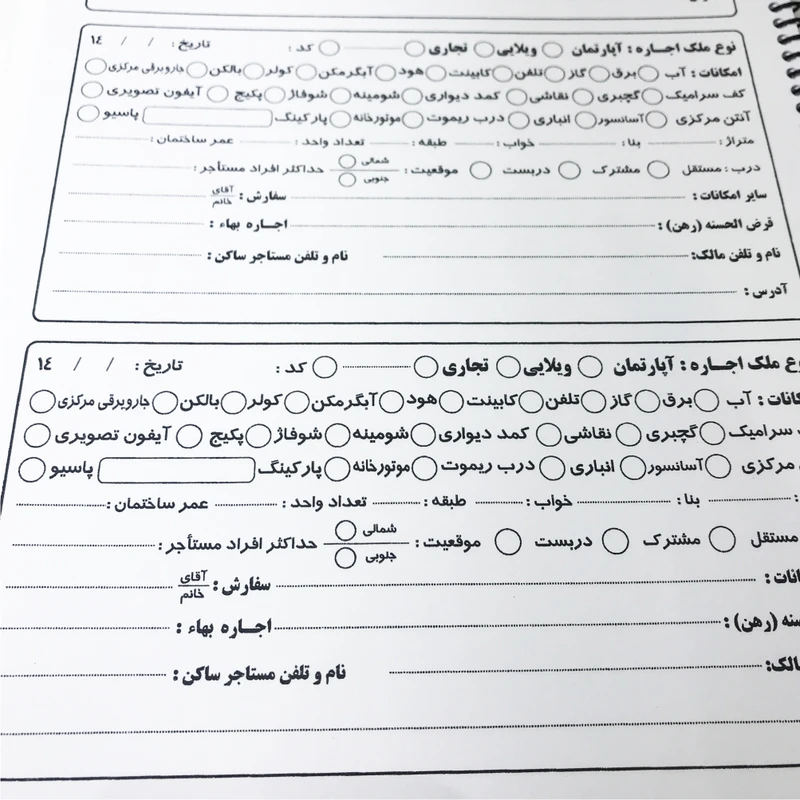 نوع ملک اجاره : آپارتمان ویلایی تجاری کد : تاریخ : / / ١٤
امکانات : آب برق گاز تلفن کابینت هود آبگرمکن کولر بالکن جاروبرقی مرکزی
کف سرامیک گچبری نقاشی کمد دیواری شومینه شوفاژ پکیج آیفون تصویری
آنتن مرکزی آسانسور انباری درب ریموت موتورخانه پارکینگ پاسیو
متراژ : بنا : خواب : طبقه : تعداد واحد : عمر ساختمان :
درب : مستقل مشترک دربست موقعیت : شمالی جنوبی حداکثر افراد مستأجر :
سایر امکانات : سفارش : آقای خانم
قرض الحسنه (رهن) : اجاره بهاء :
نام و تلفن مالک: نام و تلفن مستاجر ساکن :
آدرس :
وع ملک اجاره : آپارتمان ویلایی تجاری کد : تاریخ : / / ١٤
کانات : آب برق گاز تلفن کابینت هود آبگرمکن کولر بالکن جاروبرقی مرکزی
سرامیک گچبری نقاشی کمد دیواری شومینه شوفاژ پکیج آیفون تصویری
مرکزی آسانسور انباری درب ریموت موتورخانه پارکینگ پاسیو
: بنا : خواب : طبقه : تعداد واحد : عمر ساختمان :
مستقل مشترک دربست موقعیت : شمالی جنوبی حداکثر افراد مستأجر :
انات : سفارش : آقای خانم
سنه (رهن) : اجاره بهاء :
الک: نام و تلفن مستاجر ساکن :